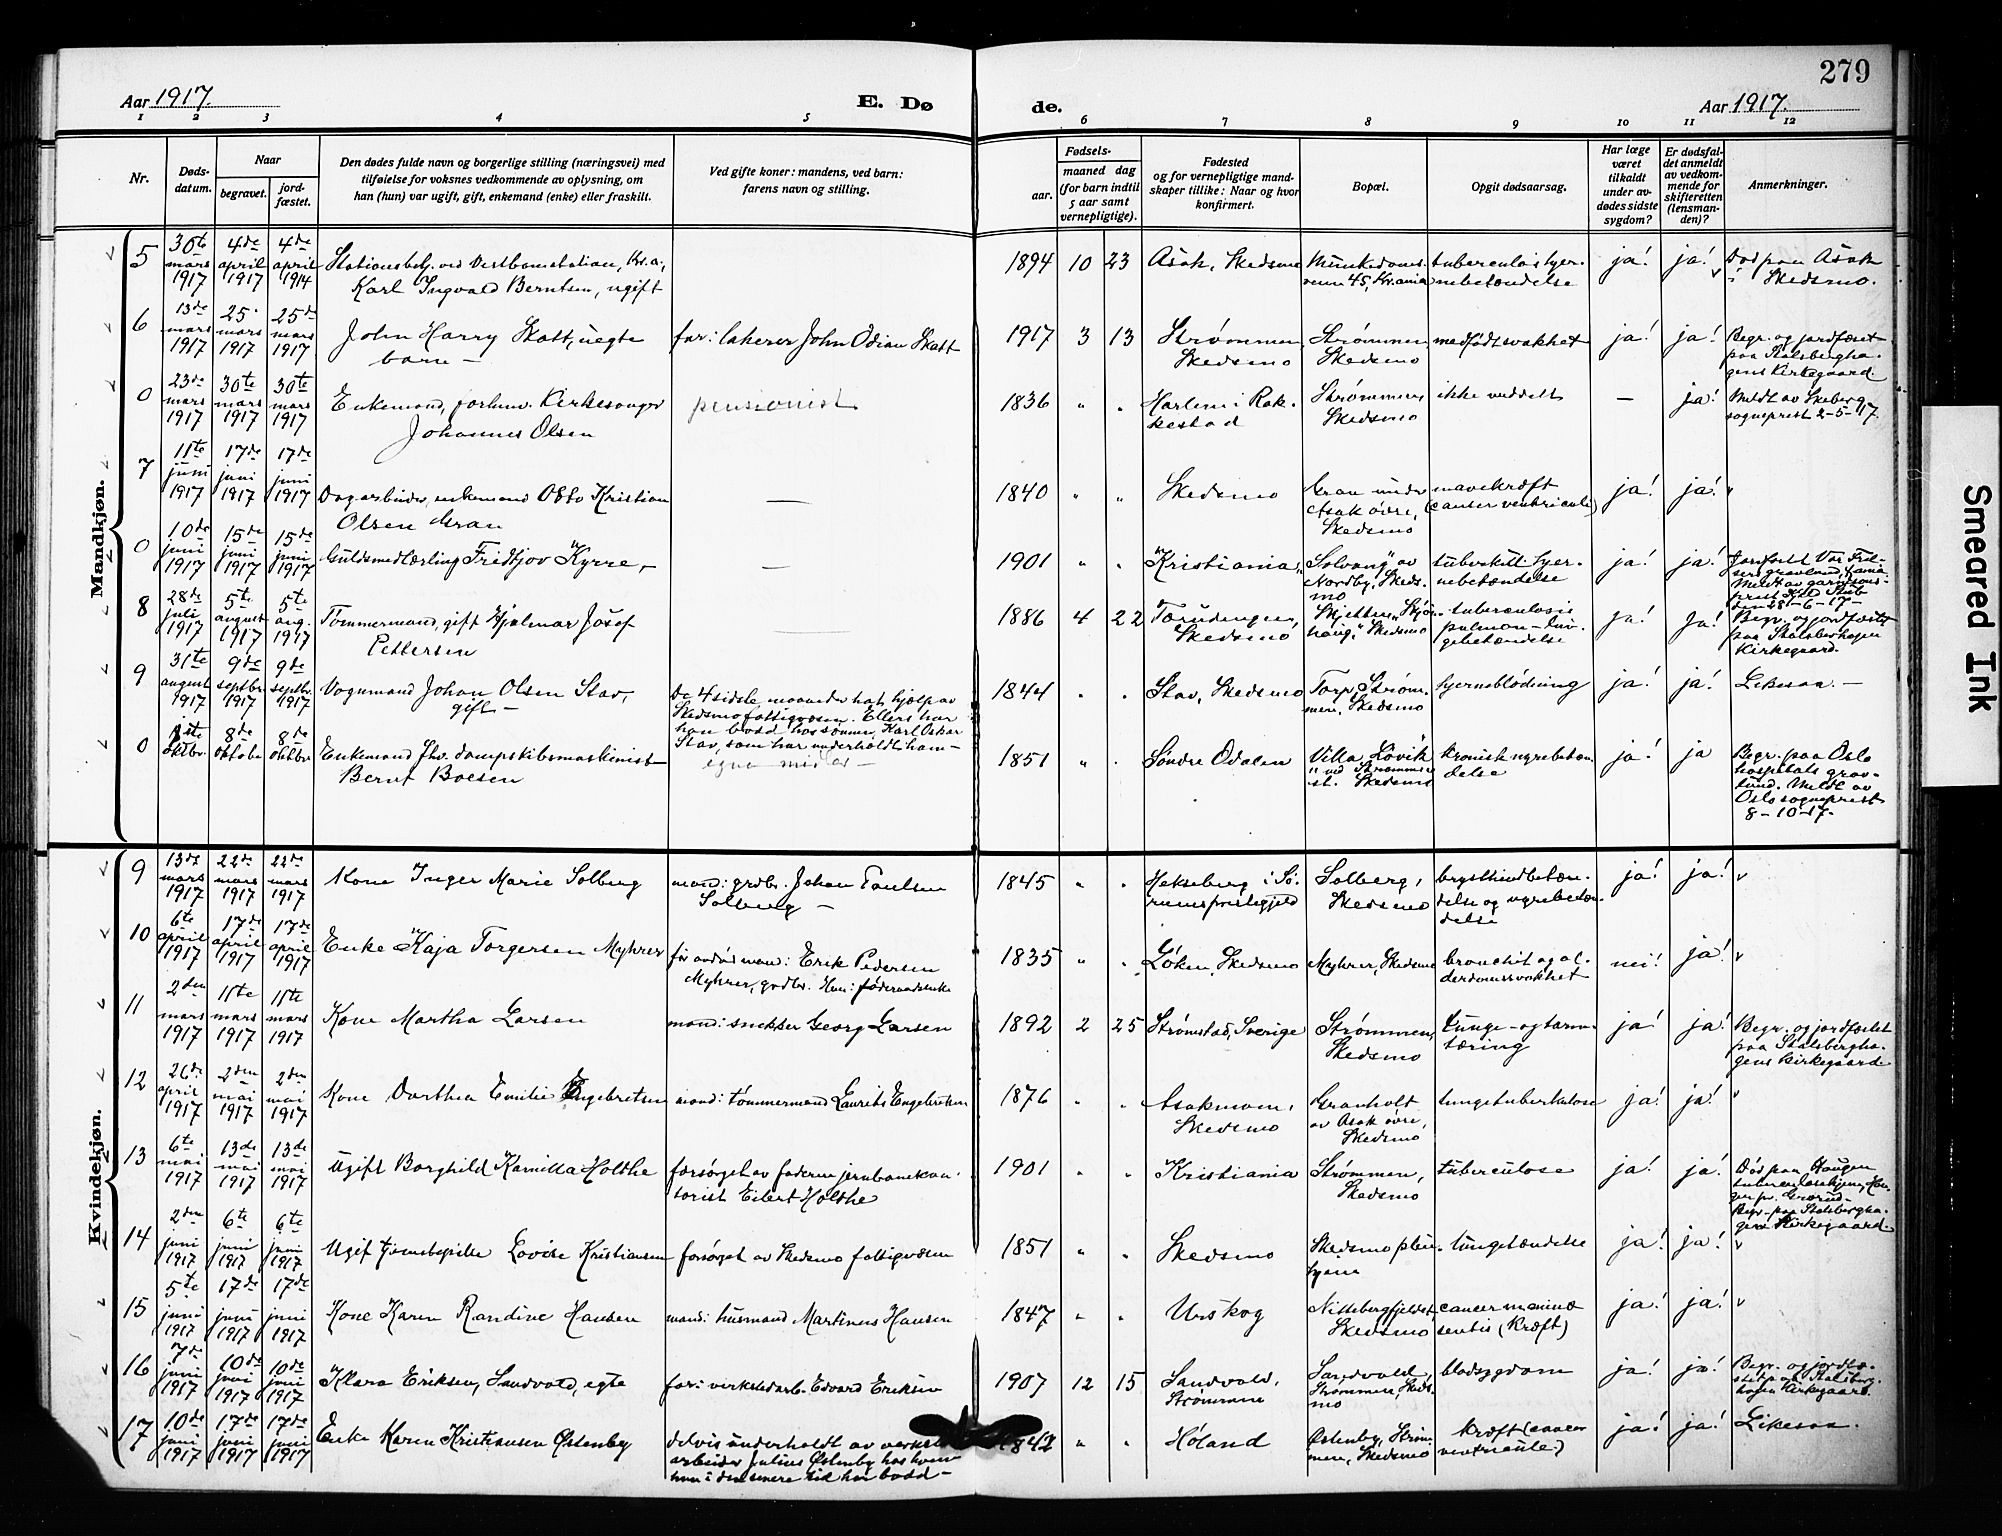 279
Aar 1917.
E. Dø
de.
Aar 1917.
1 2 3 4 5 6 7 8 9 10 11 12
Nr.
Døds-
datum.
Naar
begravet.
jord-
fæstet.
Den dødes fulde navn og borgerlige stilling (næringsvei) med
tilføielse for voksnes vedkommende av oplysning, om
han (hun) var ugift, gift, enkemand (enke) eller fraskilt.
Ved gifte koner: mandens, ved barn:
farens navn og stilling.
Fødsels-
aar.
maaned dag
(for barn indtil
5 aar samt
vernepligtige).
Fødested
og for vernepligtige mand-
skaper tillike: Naar og hvor
konfirmert.
Bopæl.
Opgit dødsaarsag.
Har læge
været
tilkaldt
under av-
dødes sidste
sygdom?
Er dødsfal-
det anmeldt
av vedkom-
mende for
skifteretten
(lensman-
den)?
Anmerkninger.
Mandkjøn.
5
30te mars 1917
4de april 1917
4de april 1914
Stationsbetj. ved Vestbanestation, Kr.a.,
Karl Ingvald Berntsen, ugift
1894 10 23
Asak, Skedsmo
Munkedams-
veien 45, Kr.ania
tuberculøs hjer-
nebetændelse
ja! ja!
Død paa Asak
i Skedsmo.
6
13de mars 1917
25. mars 1917
25de mars 1917
John Harry Skatt, uegte
barn —
far: lakerer John Odian Skatt
1917 3 13
Strømmen,
Skedsmo
Strømmen
Skedsmo
medfødt svakhet
ja! ja!
Begr. og jordfæstet
paa Stalsbergha-
gens Kirkegaard
0
23de mars 1917
30te mars 1917
30te mars 1917
Enkemand, forhenv. Kirkesanger
Johannes Olsen
pensionist
1836 " "
Harlem i Rak-
kestad
Strømmen
Skedsmo
ikke meddelt
— ja!
Meldt av Skeberg
sogneprest 2-5-17.
7
11te juni 1917
17de juni 1917
17de juni 1917
Dagarbeider, enkemand Otto Kristian
Olsen Gran
—
1840 " "
Skedsmo
Gran under
Asak øvre,
Skedsmo
mavekræft
(cancer ventriculi)
ja! ja! "
0
10de juni 1917
15de juni 1917
15de juni 1917
Guldsmedlærling Fridtjov Kyrre, —
—
1901 " "
Kristiania,
"Solvang" av
Nordby, Skeds-
mo
tuberkul. hjer-
nebetændelse
ja! ja!
Jordfæstet Vor Frel-
sers gravlund, Kr.ania
Meldt av garnisons-
prest Kjeld Stub
den 28-6-17-
8
28de juli 1917
5te august 1917
5te aug. 1917
Tømmermand, gift Hjalmar Josef
Pettersen
1886 4 22
Torudengen,
Skedsmo
Skjetten, Skjøn-
haug, Skedsmo
tuberculosis
pulmon - lun-
gebetændelse
ja! Ja!
Begr. og jordfæstet
paa Stalsberhagen
Kirkegaard.
9
31te august 1917
9de septbr. 1917
9de septbr. 1917
Vognmand Johan Olsen Stav,
gift —
De 4 sidste maaneder hat hjælp av
Skedsmo fattigvæsen. Ellers har
han bodd hos sønnen, Karl Oskar
Stav, som har underholdt ham —
1844 " "
Stav, Skedsmo
Torp, Strøm-
men, Skedsmo
hjerneblødning
ja! ja!
Likesaa. —
0
1ste oktbr.
8de oktobr
8de oktbr
Enkemand fhv. dampskibsmaskinist
Bernt Boesen
egne midler —
1851 "
Søndre Odalen
Villa "Løvik"
ved Strømmen
st. Skedsmo
kronisk nyrebetæn-
delse
ja! ja
Begr. paa Oslo
hospitals grav-
lund. Meldt av
Oslo sogneprest
8-10-17.
Kvindekjøn.
9
13de mars 1917
22de mars 1917
22de mars 1917
Kone Inger Marie Solberg
mand: grdbr. Johan Paulsen
Solberg —
1845 " "
Hekseberg i Sø-
rums prestegjeld
Solberg,
Skedsmo
brysthindbetæn-
delse og nyrebetæn-
delse
ja! ja! "
10
6te april 1917
17de april 1917
17de april 1917
Enke Kaja Torgersen Myhrer
før avdød mand: Erik Pedersen
Myhrer, grdbr. Hun: føderaadsenke
1835 " "
Løken, Skedsmo
Myhrer, Skedsmo
bronchit og al-
derdomssvakhet
nei! ja! "
11
2den mars 1917
11te mars 1917
11te mars 1917
Kone Martha Larsen
mand: snekker Georg Larsen
1892 2 25
Strømstad, Sverige
Strømmen,
Skedsmo
lunge- og tarm-
tæring
ja! ja!
Begr. og jordfæstet
paa Stalsbergha-
gens Kirkegaard
12
26de april 1917
2den mai 1917
2den mai 1917
Kone Dorthea Emilie Engebretsen
mand: tømmermand Laurits Engebretsen
1876 " "
Asakmoen,
Skedsmo
Granholt
av Asak øvre,
Skedsmo
lungetuberkulose
ja! ja! "
13
6te mai 1917
13de mai 1917
13de mai 1917
Ugift Borghild Kamilla Holthe
forsørget av faderen jernbanekon-
torist Eilert Holthe
1901 " "
Kristiania
Strømmen,
Skedsmo
tuberculose
ja! ja!
Død paa Haugen
tuberculosehjem, Hau-
gen pr. Grorud-
Begr. paa Stalsbergha-
gens Kirkegaard.
14
2den juni 1917
6te juni 1917
6te juni 1917
Ugif tjenestepike Lovise Kristiansen
forsørget av Skedsmo fattigvæsen
1851 " "
Skedsmo
Skedsmo pleie-
hjem
lungetændelse
ja! ja! "
15
5te juni 1917
17de juni 1917
17de juni 1917
Kone Karen Randine Hansen
mand: husmand Martinus Hansen
1847 " "
Urskog
Nittebergfjeldet,
Skedsmo
cancer
(kræft)
ja! ja! "
16
7de juni 1917
10de juni 1917
10de juni 1917
Klara Eriksen, Sandvold, egte
far: verkstedarb. Edvard Eriksen
1907 12 15
Sandvold,
Strømmen
Sandvold,
Strømmen, Skeds-
mo
blodsygdom
ja! ja!
Begr. og jordfæ-
stet paa Stalsberg-
hagen Kirkegaard.
17
10de juni 1917
17de juni 1917
17de juni 1917
Enke Karen Kristiansen Østenby
delvis underholdt av verksted-
arbeider Julius Østenby hos hvem
hun i den senere tid har bodd —
1842 " "
Høland
Østenby, Strøm-
men, Skedsmo
kræft (cancer
ventricule)
ja! ja!
Likesaa.
Smeared Ink